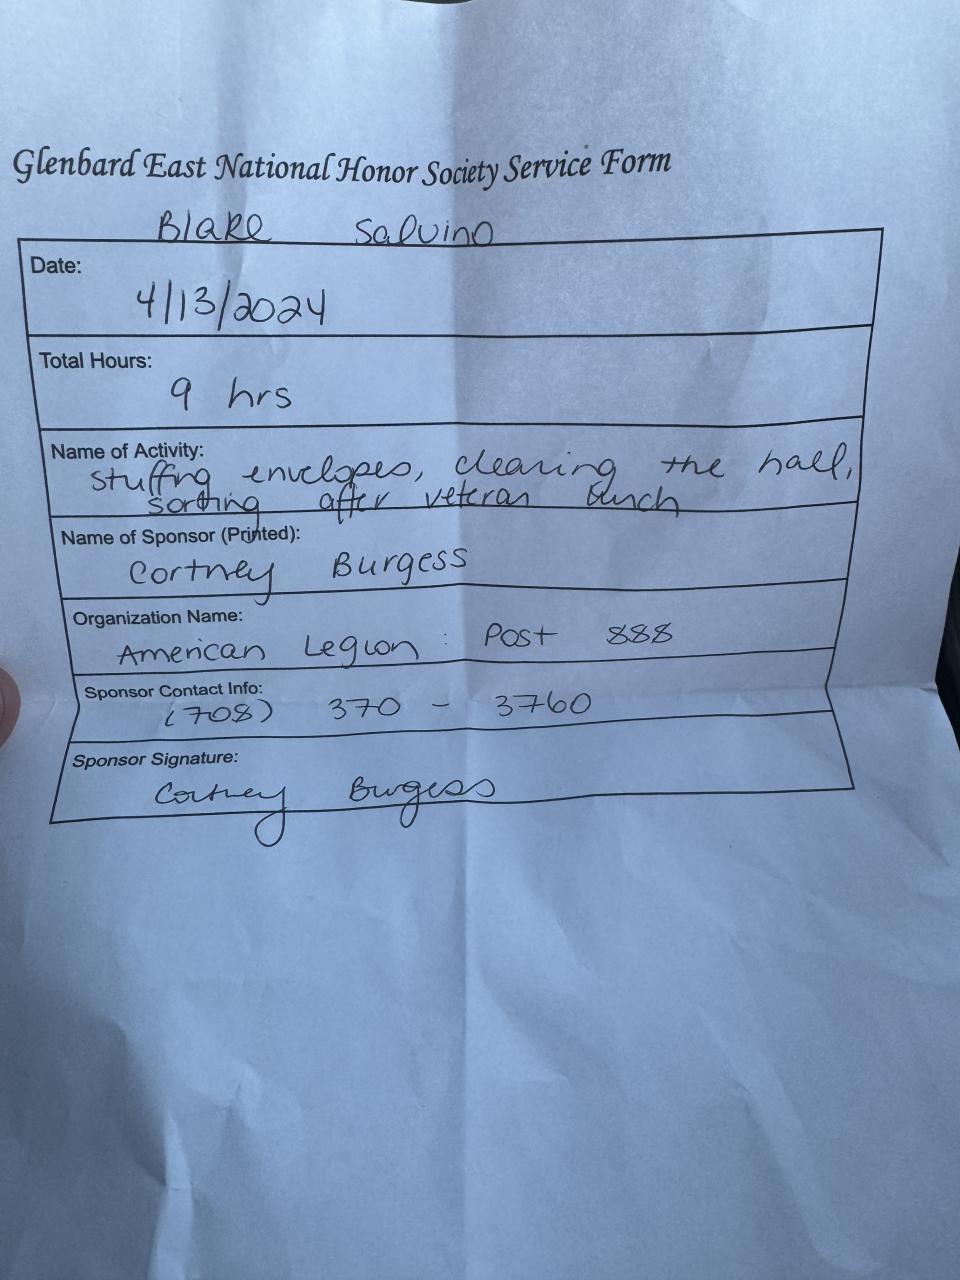 Glenbard East National Honor Society Service Form
Blake Salvino
Date:
4/13/2024
Total Hours:
9 hrs
Name of Activity:
stuffing envelopes, clearing the hall,
sorting after veteran lunch
Name of Sponsor (Printed):
Cortney Burgess
Organization Name:
American Legion : Post 888
Sponsor Contact Info:
(708) 370 - 3760
Sponsor Signature:
Cortney Burgess